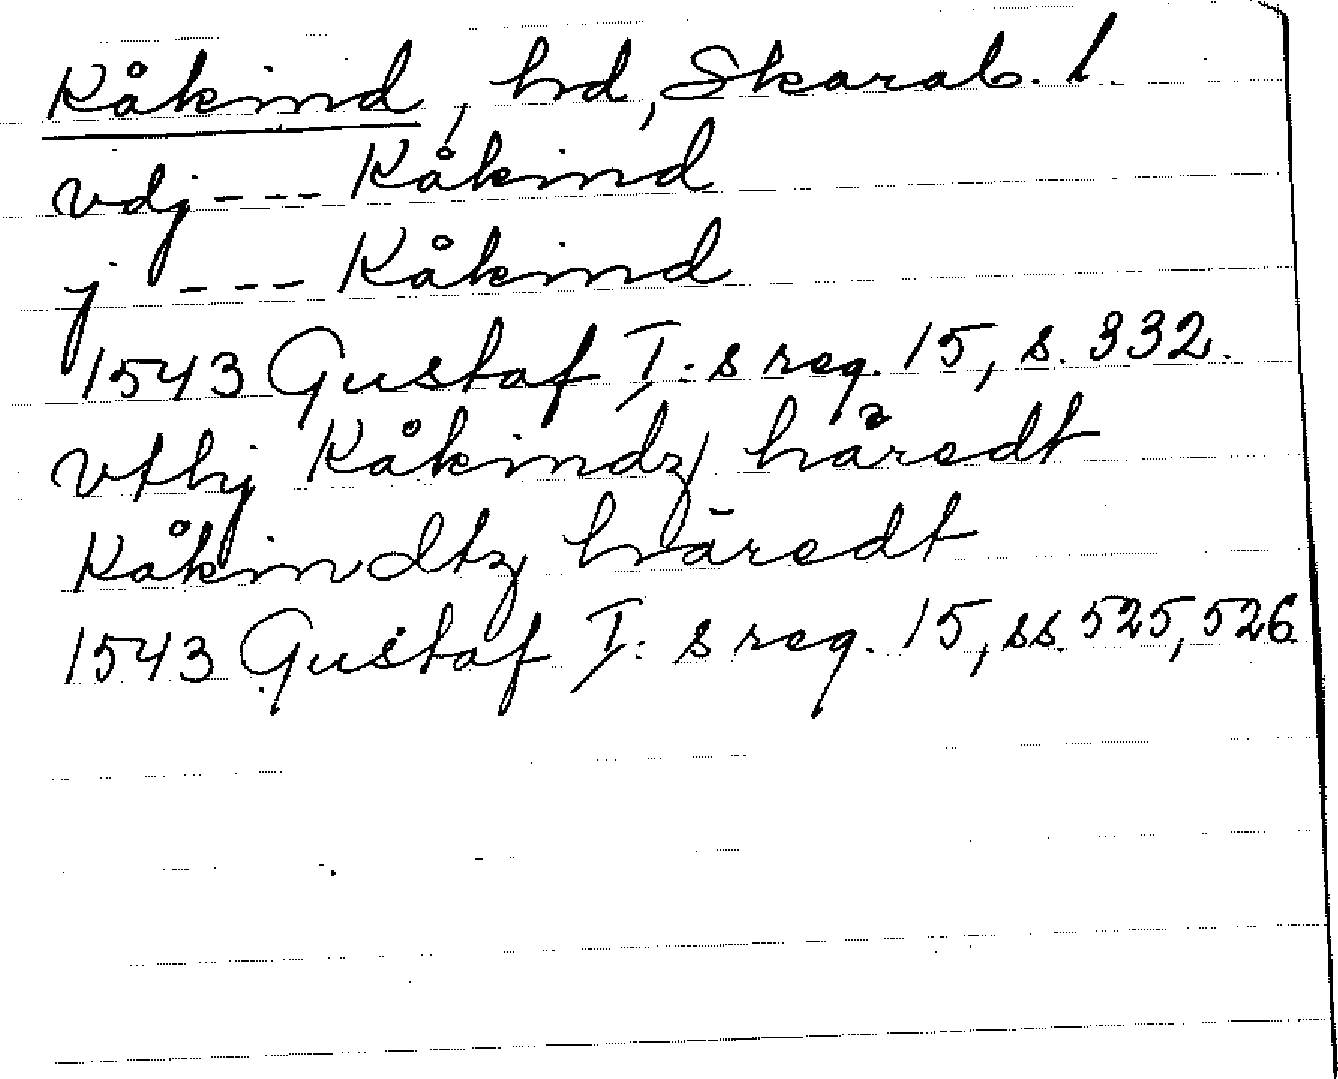 Kåkind, hd, Skarab. l.
vdj --- Kåkind
j --- Kåkind
1543 Gustaf I:s reg. 15, s. 332.
vthj Kåkindz håredt
Kåkindtz häredt
1543 Gustaf I:s reg. 15, ss. 525, 526